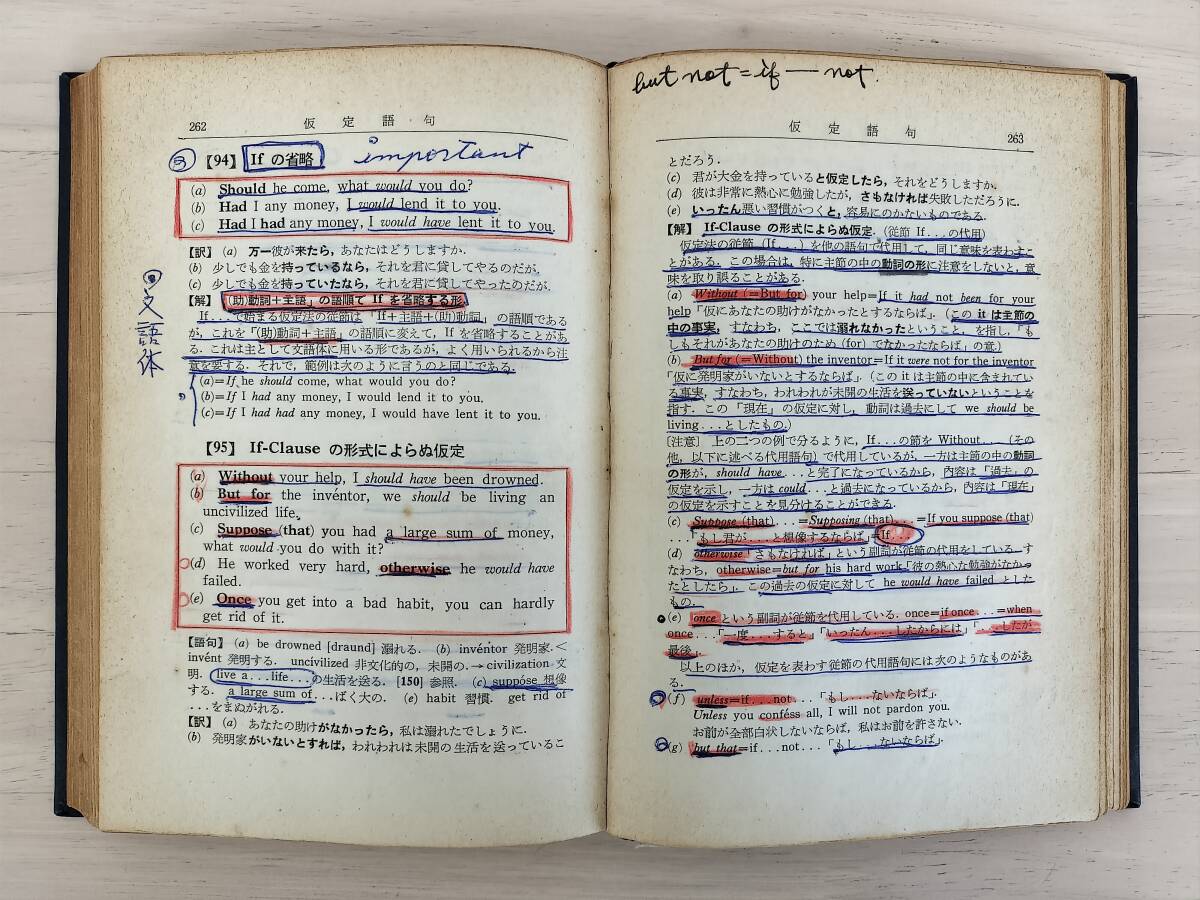 262 仮定語句
【94】 If の省略 important
(a) Should he come, what would you do?
(b) Had I any money, I would lend it to you.
(c) Had I had any money, I would have lent it to you.
【訳】 (a) 万一彼が来たら, あなたはどうしますか.
(b) 少しでも金を持っているなら, それを君に貸してやるのだが.
(c) 少しでも金を持っていたなら, それを君に貸してやったのだが.
【解】 「(助)動詞+主語」の語順で If を省略する形
If...で始まる仮定法の従節は「If+主語+(助)動詞」の語順である
が, これを「(助)動詞+主語」の語順に変えて, If を省略することがあ
る. これは主として文語体に用いる形であるが, よく用いられるから注
意を要する. それで, 範例は次のように言うのと同じである.
(a)=If he should come, what would you do?
(b)=If I had any money, I would lend it to you.
(c)=If I had had any money, I would have lent it to you.
文語体
【95】 If-Clause の形式によらぬ仮定
(a) Without your help, I should have been drowned.
(b) But for the invéntor, we should be living an
uncivilized life.
(c) Suppose (that) you had a large sum of money,
what would you do with it?
(d) He worked very hard, otherwise he would have
failed.
(e) Once you get into a bad habit, you can hardly
get rid of it.
【語句】 (a) be drowned [draund] 溺れる. (b) invéntor 発明家.<
invént 発明する. uncivilized 非文化的の, 未開の.→civilization 文
明. live a...life...の生活を送る. [150] 参照. (c) suppóse 想像
する. a large sum of...ばく大の. (e) habit 習慣. get rid of
...をまぬがれる.
【訳】 (a) あなたの助けがなかったら, 私は溺れたでしょうに.
(b) 発明家がいないとすれば, われわれは未開の生活を送っているこ
but not = if — not.
仮定語句 263
とだろう.
(c) 君が大金を持っていると仮定したら, それをどうしますか.
(d) 彼は非常に熱心に勉強したが, さもなければ失敗しただろうに.
(e) いったん悪い習慣がつくと, 容易にのかないものである.
【解】 If-Clause の形式によらぬ仮定. (従節 If...の代用)
仮定法の従節 (If...) を他の語句で代用して, 同じ意味を表わすこ
とがある. この場合は, 特に主節の中の動詞の形に注意をしないと, 意
味を取り誤ることがある.
(a) Without (=But for) your help=If it had not been for your
help「仮にあなたの助けがなかったとするならば」. (この it は主節の
中の事実, すなわち, ここでは溺れなかったということ, を指し,「も
しもそれがあなたの助けのため (for) でなかったならば」の意.)
(b) But for (=Without) the inventor=If it were not for the inventor
「仮に発明家がいないとするならば」. (この it は主節の中に含まれてい
る事実, すなわち, われわれが未開の生活を送っていないということを
指す. この「現在」の仮定に対し, 動詞は過去にして we should be
living...としたもの.)
[注意] 上の二つの例で分るように, If...の節を Without... (その
他, 以下に述べる代用語句) で代用しているが, 一方は主節の中の動詞
の形が, should have...と完了になっているから, 内容は「過去」の
仮定を示し, 一方は could...と過去になっているから, 内容は「現在」
の仮定を示すことを見分けることができる.
(c) Suppose (that)...=Supposing (that)...=If you suppose (that)
...「もし君が...と想像するならば」=If...
(d) otherwise「さもなければ」という副詞が従節の代用をしている. す
なわち, otherwise=but for his hard work「彼の熱心な勉強がなかっ
たとしたら」. この過去の仮定に対して he would have failed とした
もの.
(e) once という副詞が従節を代用している. once=if once...=when
once...「一度...すると」「いったん...したからには」「...したが
最後」.
以上のほか, 仮定を表わす従節の代用語句には次のようなものがあ
る.
(f) unless=if...not...「もし...ないならば」.
Unless you conféss all, I will not pardon you.
お前が全部白状しないならば, 私はお前を許さない.
(g) but that=if...not...「もし...ないならば」.